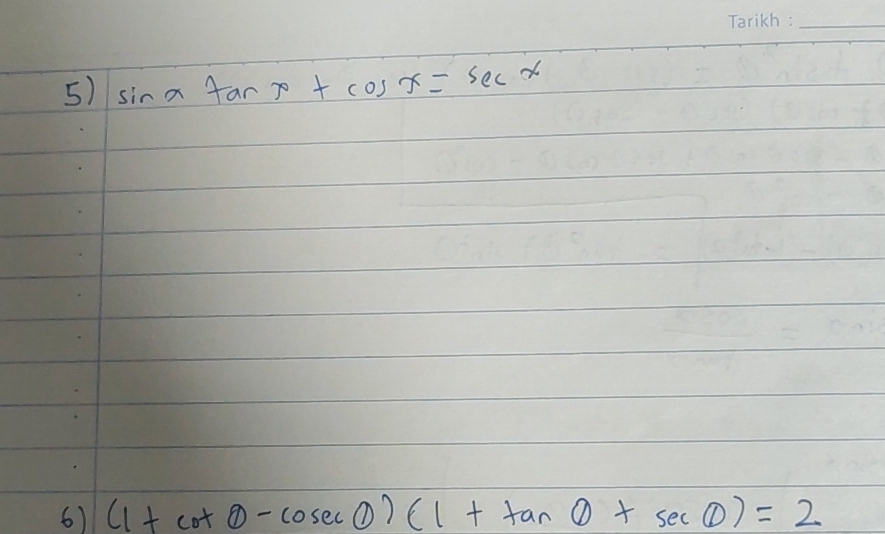 Tarikh :
5) sin x tan x + cos x = sec x
6) (1 + cot θ - cosec θ) (1 + tan θ + sec θ) = 2